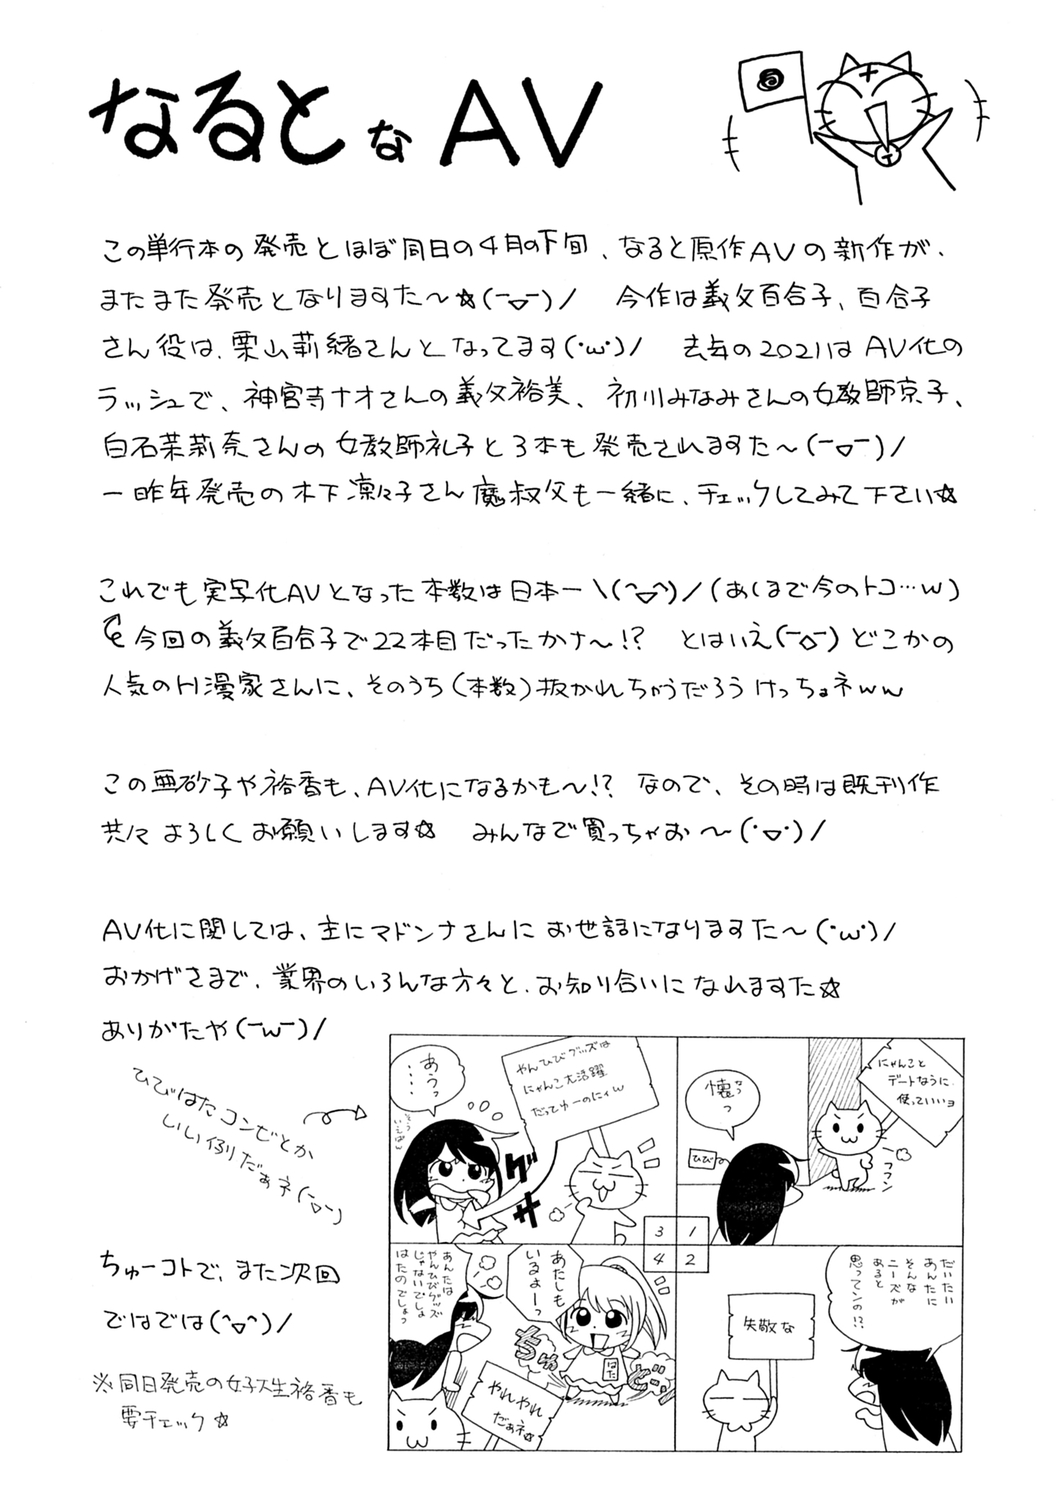 なるとな AV
この単行本の発売とほぼ同日の4月の下旬、なると原作AVの新作が、
またまた発売となりますた〜☆(ー▽ー)/ 今作は義父百合子、百合子
さん役は、栗山莉緒さんとなってます(・ω・)/ 去年の2021はAV化の
ラッシュで、神宮寺ナオさんの義父裕美、初川みなみさんの女教師京子、
白石茉莉奈さんの女教師礼子と3本も発売されますた〜(ー▽ー)/
一昨年発売の木下凛々子さん魔叔父も一緒に、チェックしてみて下さい☆
これでも実写化AVとなった本数は日本一\(^▽^)/(あくまで今のトコ…w)
今回の義父百合子で22本目だったかナ〜!? とはいえ(ー▽ー)どこかの
人気のH漫家さんに、そのうち(本数)抜かれちゃうだろうけっちょネww
この亜砂子や裕香も、AV化になるかも〜!? なので、その時は既刊作
共々よろしくお願いします☆ みんなで買っちゃお〜(・▽・)/
AV化に関しては、主にマドンナさんにお世話になりますた〜(・ω・)/
おかげさまで、業界のいろんな方々と、お知り合いになれますた☆
ありがたや(ーωー)/
ひびはたコンビとか
いい例だぁネ(ー▽ー)
ちゅーコトで、また次回
ではでは(^▽^)/
※同日発売の女子大生裕香も
要チェック☆
にゃんこと
デートなうに、
使っていいヨ
懐っつ
ひび
フフン
1
だいたい
あんたに
そんな
ニーズが
あると
思ってンの!?
失敬な
2
やんひびグッズは
にゃんこ大活躍
だってゆーのにィw
あうっ
・・・・
グサ
3
あたしも
いるよーっ
あんたは
やんひびグッズ
じゃないでしょ
はたのでしょっ
はた
ちゅどーん
やれやれ
だぁネ☆
4